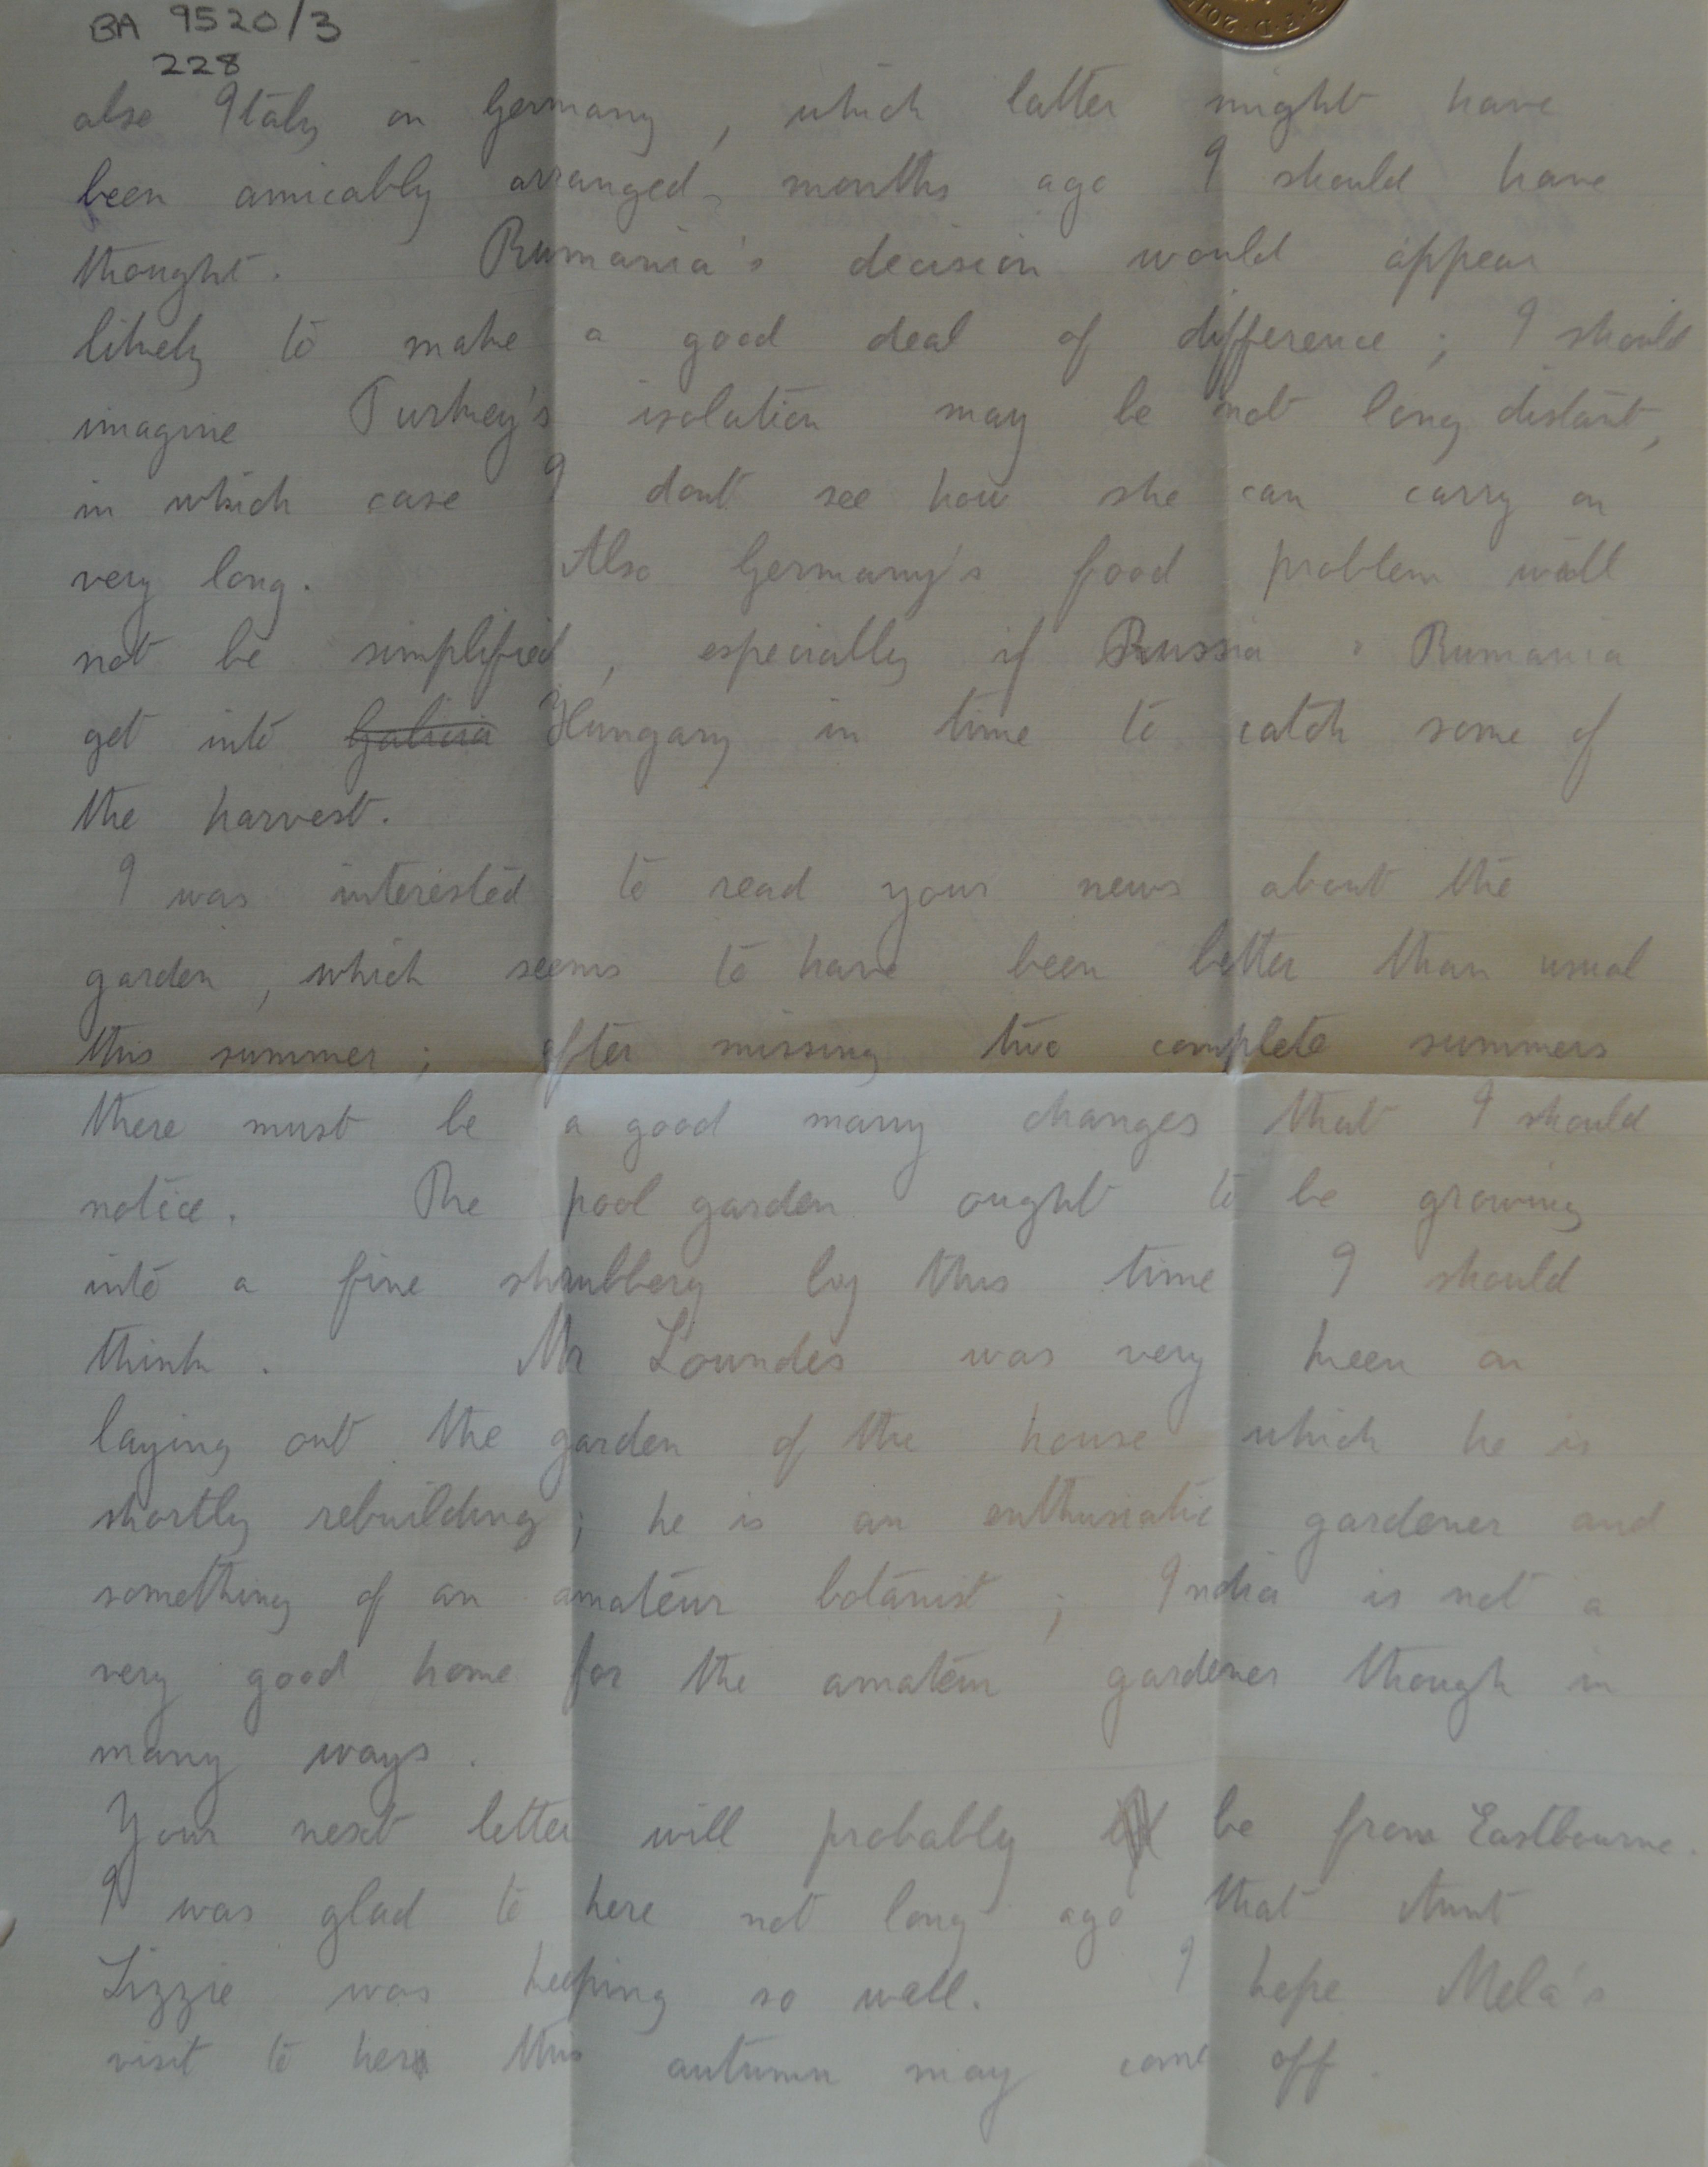 BA 9520/3
228
also Italy on Germany, which latter might have
been amicably arranged months ago I should have
thought. Rumania's decision would appear
likely to make a good deal of difference; I should
imagine Turkey's isolation may be not long distant,
in which case I dont see how she can carry on
very long. Also Germany's food problem will
not be simplified, especially if Russia & Rumania
get into Galicia Hungary in time to catch some of
the harvest.
I was interested to read your news about the
garden, which seems to have been better than usual
this summer; after missing two complete summers
there must be a good many changes that I should
notice. The pool garden ought to be growing
into a fine shrubbery by this time I should
think. Mr Lowndes was very keen on
laying out the garden of the house which he is
shortly rebuilding; he is an enthusiatic gardener and
something of an amateur botanist; India is not a
very good home for the amateur gardener though in
many ways.
Your next letter will probably be from Eastbourne.
I was glad to here not long ago that Aunt
Lizzie was keeping so well. I hope Mela's
visit to her this autumn may come off.